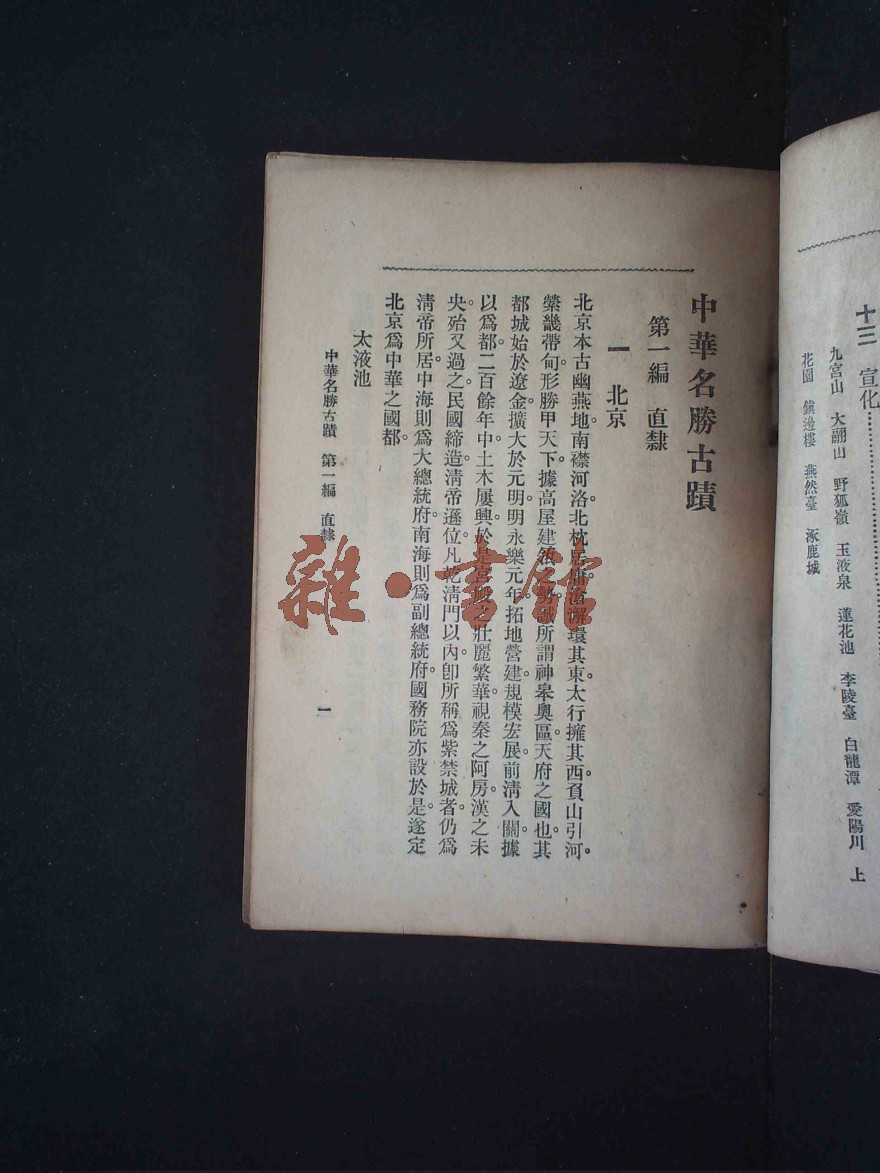 十三 宣化
九宮山 大翮山 野狐嶺 玉液泉 蓮花池 李陵臺 白龍潭 愛陽川 上
花園 鎮邊樓 燕然臺 涿鹿城
中華名勝古蹟
第一編 直隸
一 北京
北京本古幽燕地。南襟河洛。北枕居庸。渤澥環其東。太行擁其西。負山引河。
縈畿帶甸。形勝甲天下。據高屋建瓴之勢。誠所謂神皋奧區。天府之國也。其
都城始於遼金。擴大於元明。明永樂元年。拓地營建。規模宏展。前淸入關。據
以爲都。二百餘年中。土木屢興。於是宮殿之壯麗繁華。視秦之阿房。漢之未
央。殆又過之。民國締造。淸帝遜位。凡乾淸門以內。卽所稱爲紫禁城者。仍爲
淸帝所居。中海則爲大總統府。南海則爲副總統府。國務院亦設於是。遂定
北京爲中華之國都。
太液池
中華名勝古蹟 第一編 直隸 一
雜·書館